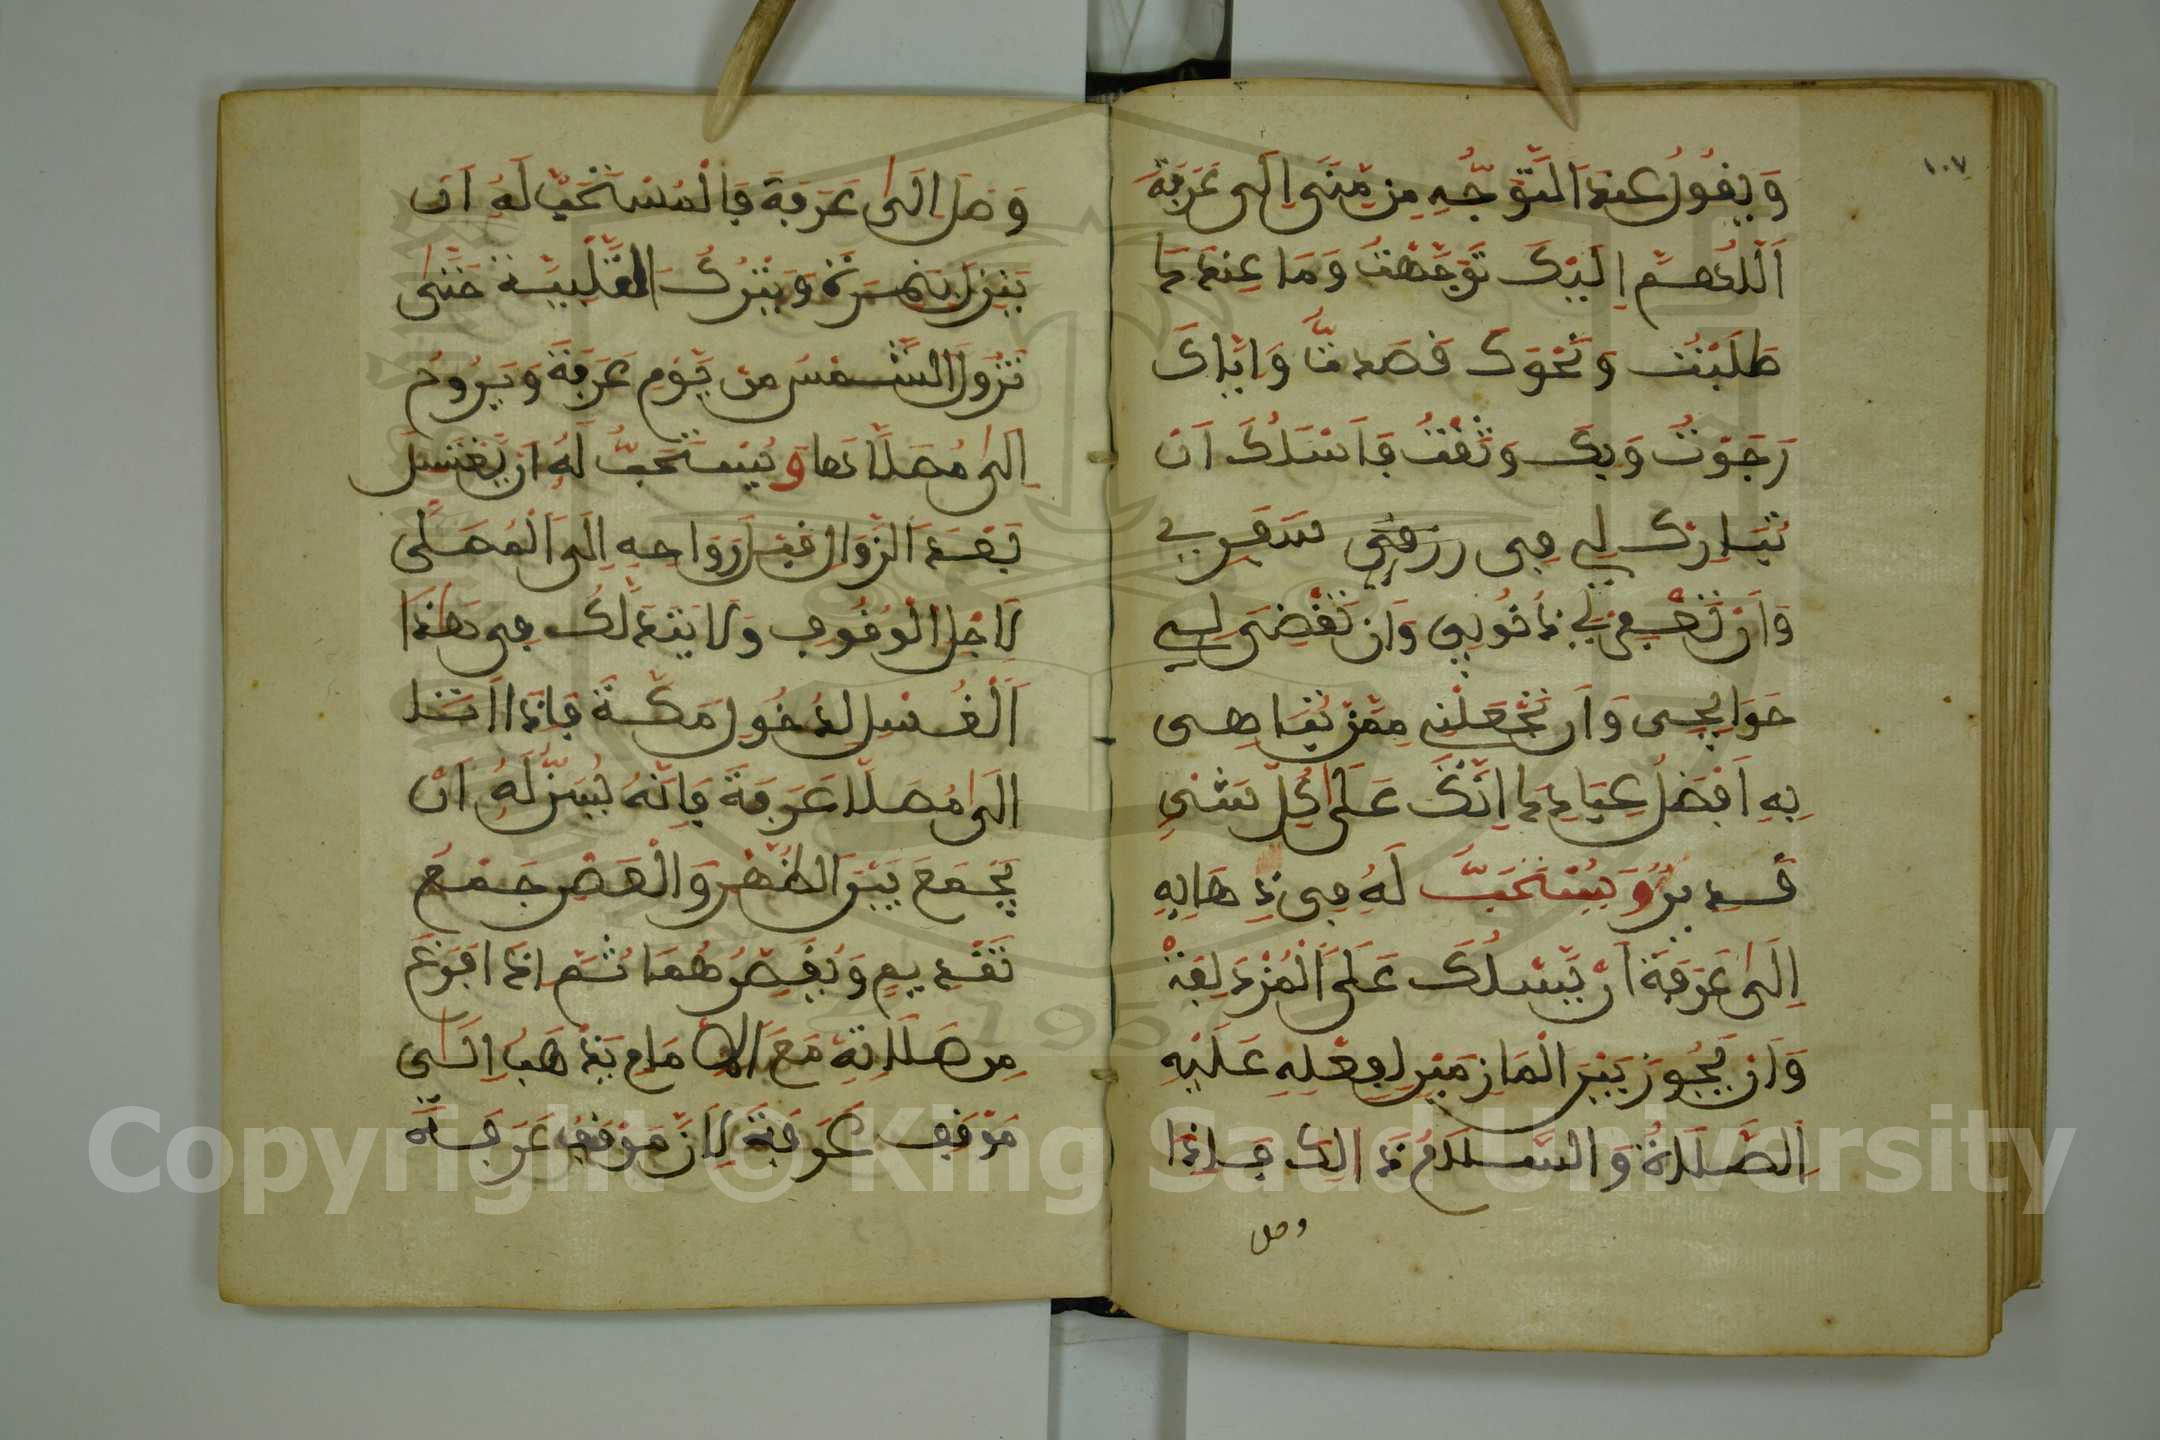 ١٠٧
وَيَقُولُ عِنْدَ التَّوَجُّهِ مِن مِّنَى اِلَى عَرَفَةَ
اَللَّهُمَّ اِلَيْكَ تَوَجَّهْتُ وَمَا عِنْدَكَ
طَلَبْتُ وَنَحْوَكَ قَصَدتُّ وَاِيَّاكَ
رَجَوْتُ وَبِكَ وَثِقْتُ فَاَسْئَلُكَ اَنْ
تُبَارِكَ لِي فِي سَفَرِي
وَاَنْ تَغْفِرَ لِي ذُنُوبِي وَاَن تَقْضِيَ لِي
حَوَايِجِي وَاَن تَجْعَلْنِي مِمَّنْ تُبَاهِي
بِهِ اَفْضَلَ عِبَادِكَ اِنَّكَ عَلَى كُلِّ شَيْءٍ
قَدِيرٌ وَيُسْتَحَبُّ لَهُ فِي ذِهَابِهِ
اِلَى عَرَفَةَ اَنْ يَّسْلُكَ عَلَى الْمُزْدَلِفَةِ
وَاَنْ يَّجُوزَ بَيْنَ الْمَازِمَيْنِ لِفِعْلِهِ عَلَيْهِ
الصَّلَاةُ وَالسَّلَامُ ذَالِكَ فَاِذَا
وصل
وَصَلَ اِلَى عَرَفَةَ فَالْمُسْتَحَبُّ لَهُ اَنْ
يَنْزِلَ بِنَمِرَةَ وَيَتْرُكَ التَّلْبِيَةَ حَتَّى
تَزُولَ الشَّمْسُ مِنْ يَّوْمِ عَرَفَةَ وَيَرُوحُ
اِلَى مُصَلَّاهَا وَيُسْتَحَبُّ لَهُ اَنْ يَّغْتَسِلَ
بَعْدَ الزَّوَالِ قَبْلَ رَوَاحِهِ اِلَى الْمُصَلَّى
لِاَجْلِ الْوُقُوفِ وَلَا يَتَدَلَّكُ فِي هَذَا
اَلْغُسْلِ لِدُخُولِ مَكَّةَ فَاِذَا اَتَى
اِلَى مُصَلَّا عَرَفَةَ فَاِنَّهُ يُسَنُّ لَهُ اَنْ
يَّجْمَعَ بَيْنَ الظُّهْرِ وَالْعَصْرِ جَمْعَ
تَقْدِيمٍ وَيُقَصِّرُهُمَا ثُمَّ اِذَا فَرَغَ
مِن صَلَاتِهِ مَعَ الاِمَامِ يَذْهَبُ اِلَى
مَوْقِفِ عَرَفَةَ لِاَنَّ مَوْقِفَ عَرَفَةَ